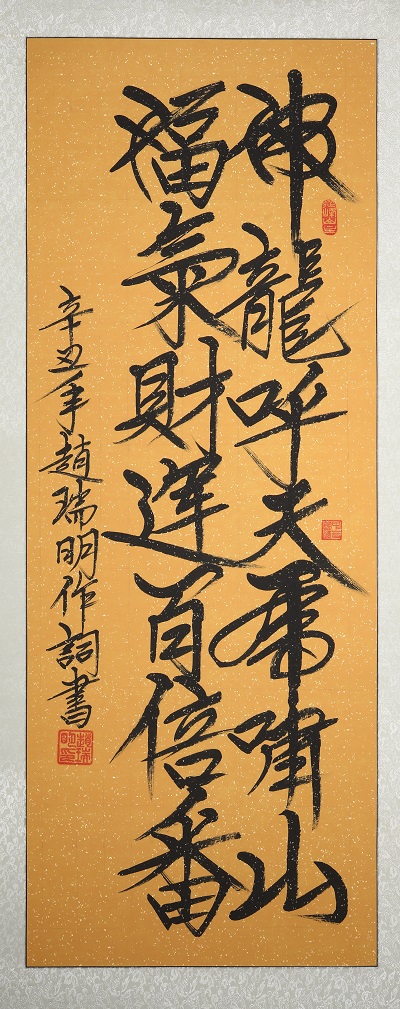 神龍呼天虎嘯山
福氣財運百倍番
辛丑年趙瑞明作詞書
趙瑞明印